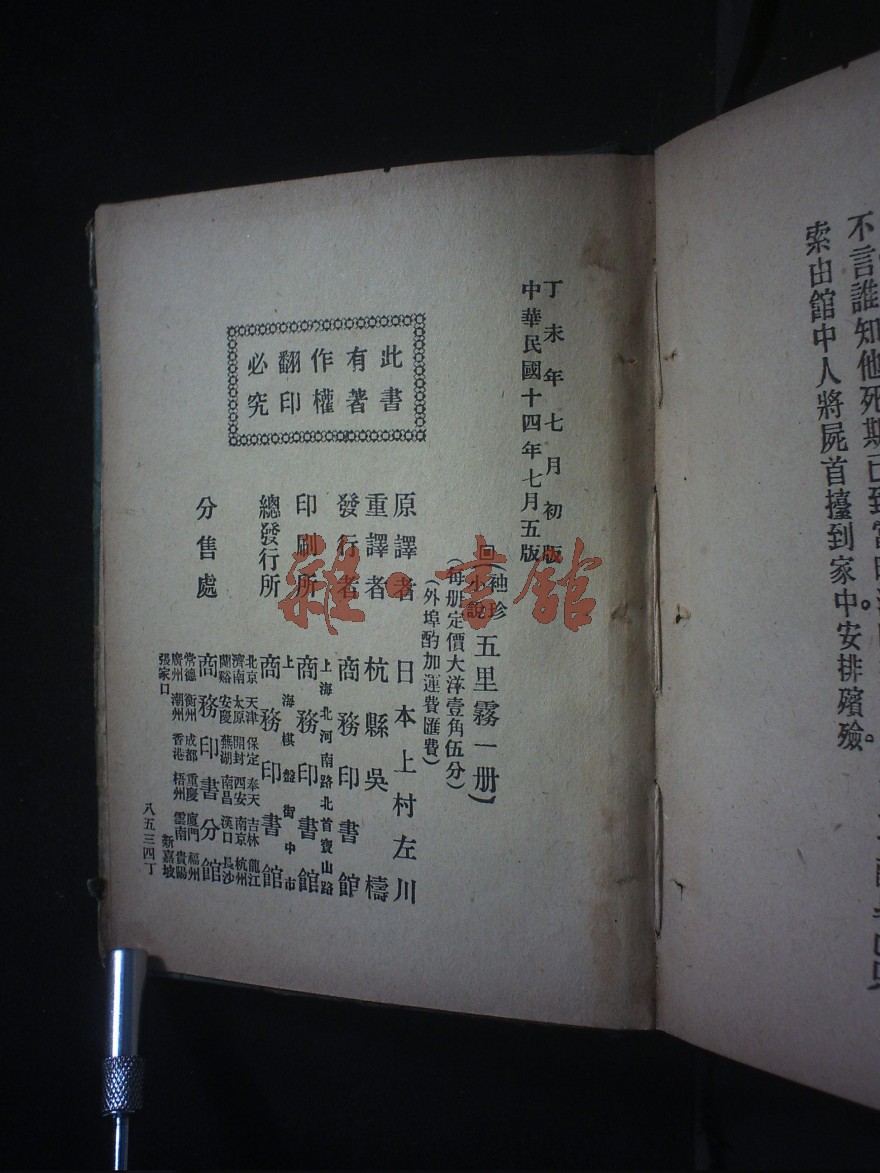 不言誰知他死期已到
索由館中人將屍首擡到家中安排殯殮。
丁未年七月初版
中華民國十四年七月五版
回(袖珍小說 五里霧一册)
(每册定價大洋壹角伍分)
(外埠酌加運費匯費)
此書
有著
作權
翻印
必究
原譯者 日本上村左川
重譯者 杭縣吳檮
發行者 商務印書館
上海北河南路北首寶山路
印刷所 商務印書館
上海棋盤街中市
總發行所 商務印書館
北京 天津 保定 奉天 吉林 龍江
濟南 太原 開封 西安 南京 杭州
蘭谿 安慶 蕪湖 南昌 漢口 長沙
分售處 商務印書分館
常德 衡州 成都 重慶 廈門 福州
廣州 潮州 香港 梧州 雲南 貴陽
張家口 新嘉坡
八五三四丁
雜·書館